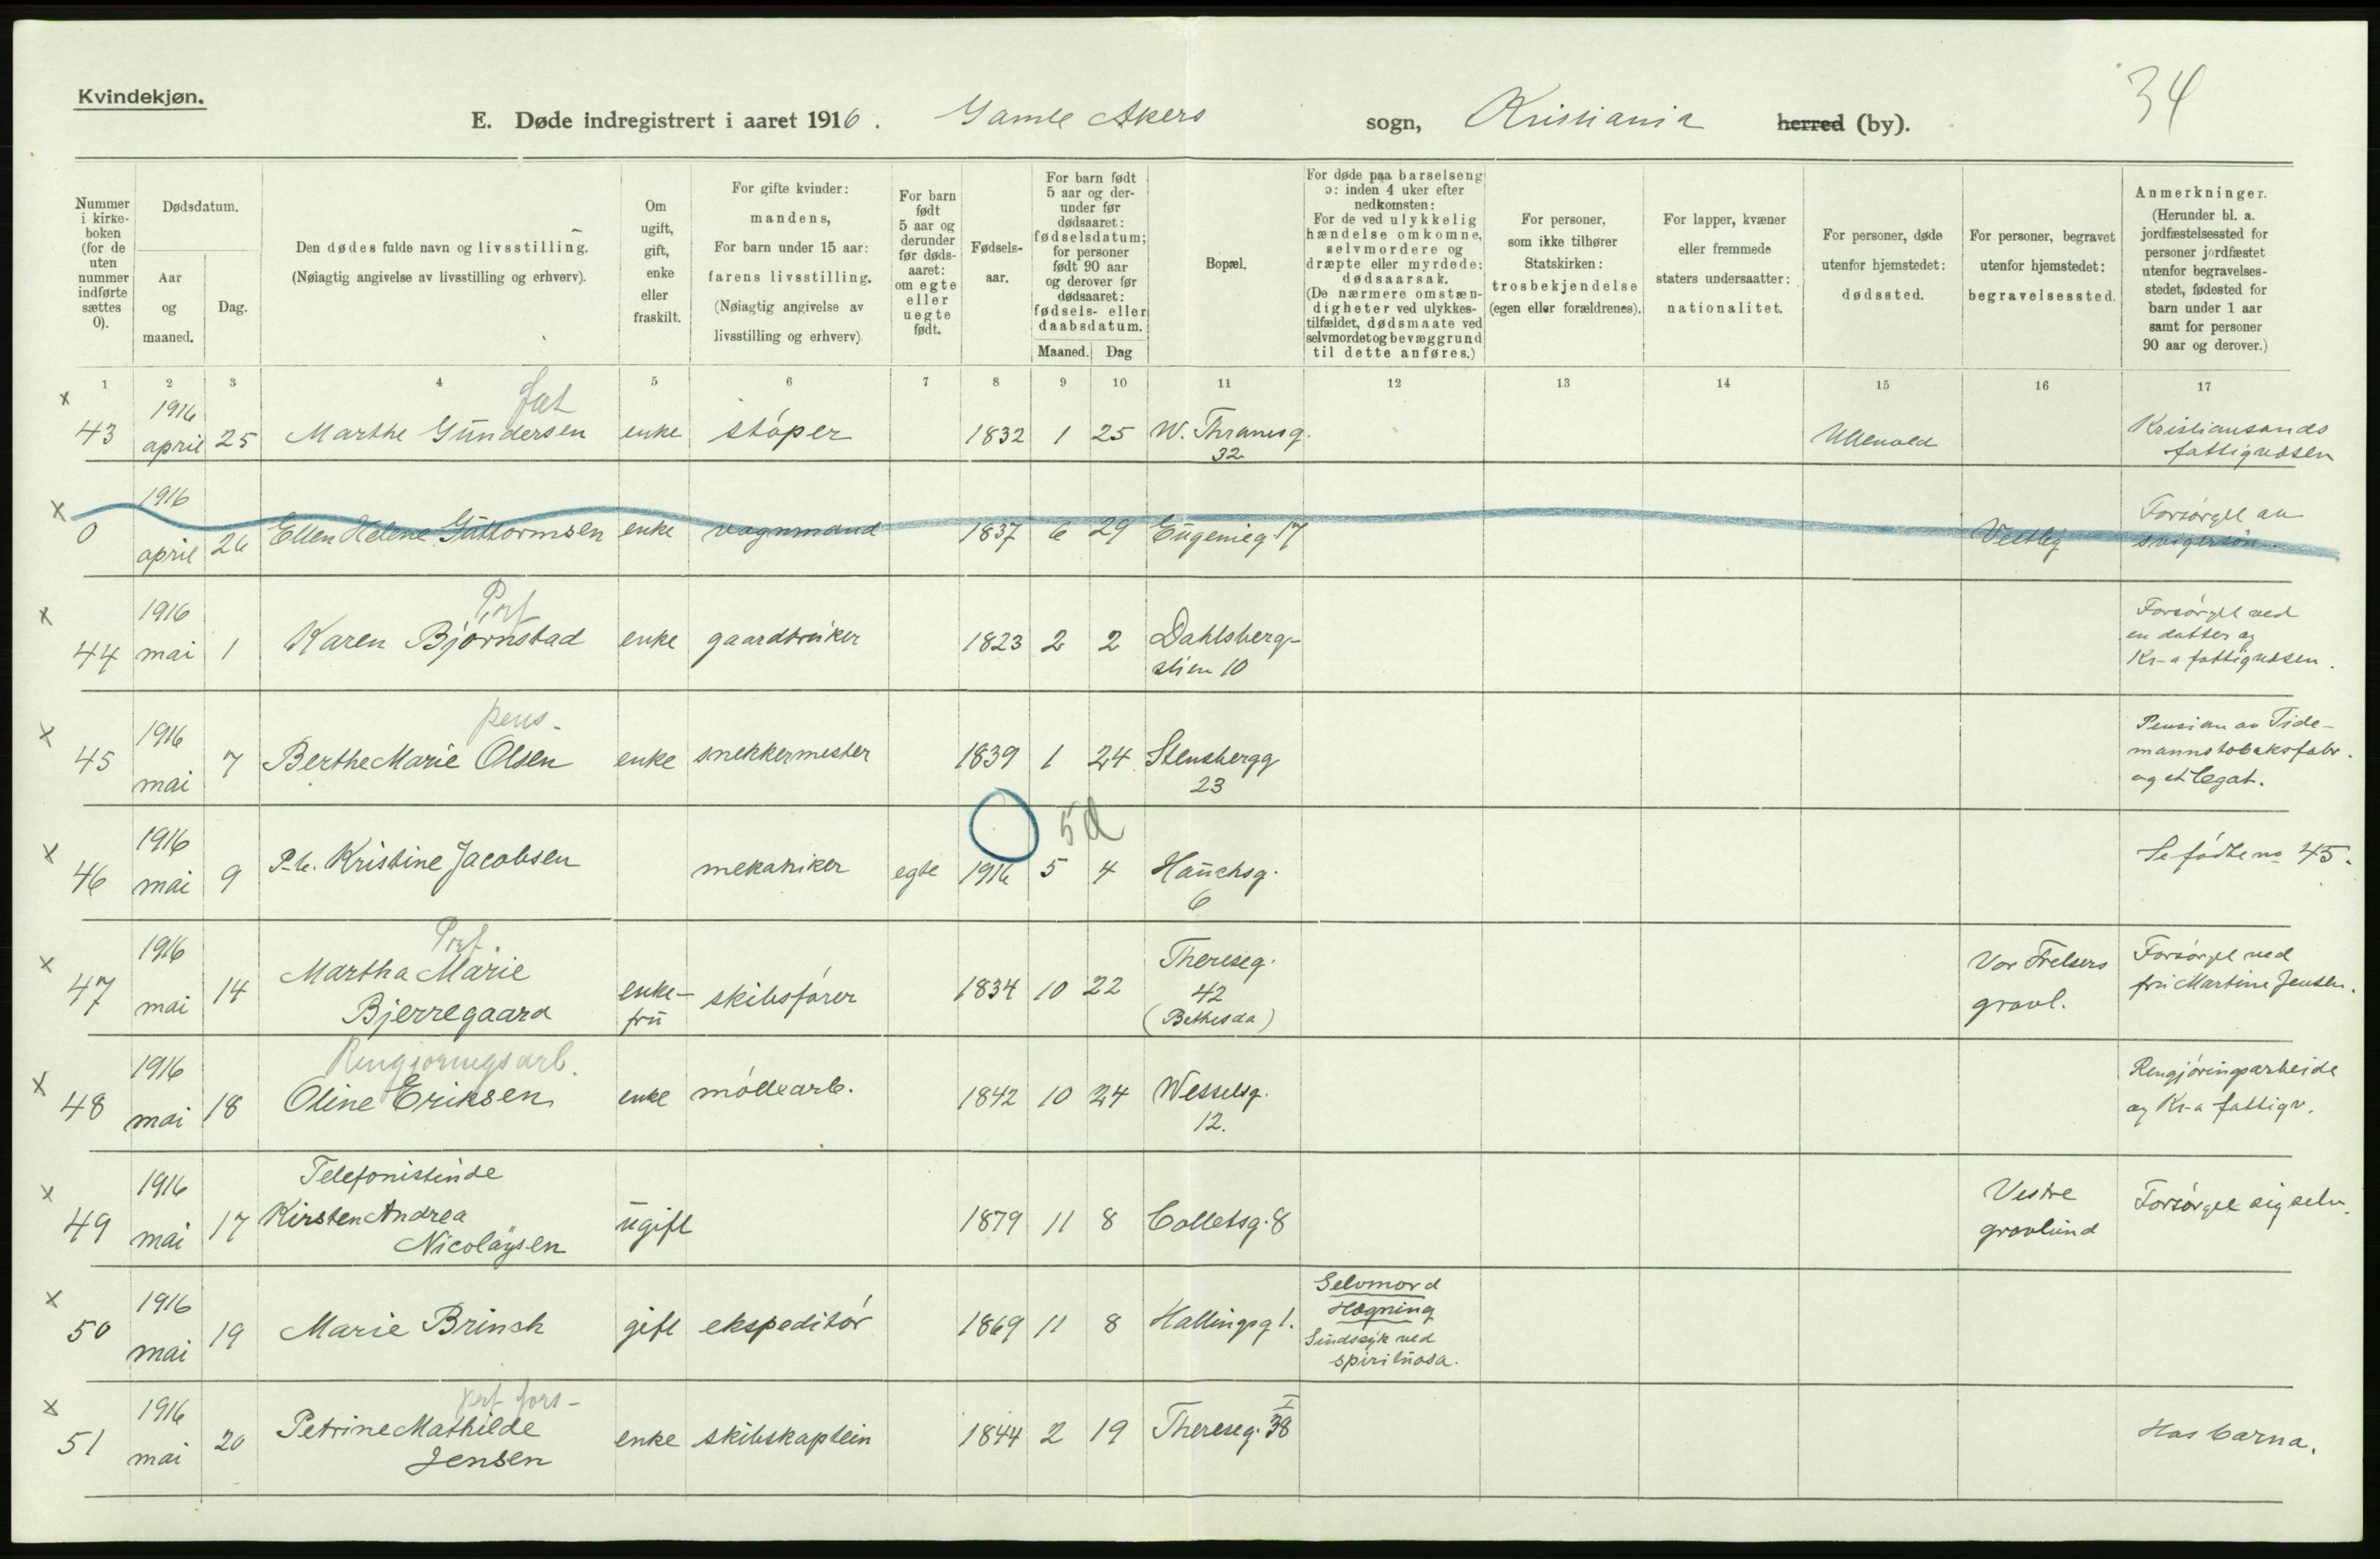 Kvindekjøn.
34
E. Døde indregistrert i aaret 1916. Gamle Akers sogn, Kristiania herred (by).
Nummer i kirkeboken (for de uten nummer indførte sættes 0).
Dødsdatum.
Aar og maaned.
Dag.
Den dødes fulde navn og livsstilling.
(Nøiagtig angivelse av livsstilling og erhverv).
Om ugift, gift, enke eller fraskilt.
For gifte kvinder: mandens, For barn under 15 aar: farens livsstilling. (Nøiagtig angivelse av livsstilling og erhverv)
For barn født 5 aar og derunder før dødsaaret: om egte eller uegte født.
Fødselsaar.
For barn født 5 aar og derunder før dødsaaret: fødselsdatum; for personer født 90 aar og derover før dødsaaret: fødsels- eller daabsdatum.
Maaned. Dag
Bopæl.
For døde paa barselseng ɔ: inden 4 uker efter nedkomsten: For de ved ulykkelig hændelse omkomne, selvmordere og dræpte eller myrdede: dødsaarsak. (De nærmere omstændigheter ved ulykkestilfældet, dødsmaate ved selvmordet og bevæggrund til dette anføres.)
For personer, som ikke tilhører Statskirken: trosbekjendelse (egen eller forældrenes).
For lapper, kvæner eller fremmede staters undersaatter: nationalitet.
For personer, døde utenfor hjemstedet: dødssted.
For personer, begravet utenfor hjemstedet: begravelsessted.
Anmerkninger. (Herunder bl. a. jordfæstelsessted for personer jordfæstet utenfor begravelsesstedet, fødested for barn under 1 aar samt for personer 90 aar og derover.)
1 2 3 4 5 6 7 8 9 10 11 12 13 14 15 16 17
x 43 1916 april 25 fat Marthe Gundersen enke støper 1832 1 25 W. Thranesg. 32 Ullevold Kristiansands fattigvæsen
x 0 1916 april 26 Ellen Helene Guttormsen enke vognmand 1837 6 29 Eugenieg. 17 Vestby Forsørget av svigersøn.
x 44 1916 mai 1 Prf Karen Bjørnstad enke gaardbruker 1823 2 2 Dahlsbergstien 10 Forsørget ved en datter og Kr-a fattigvæsen.
x 45 1916 mai 7 pens- Berthe Marie Olsen enke snekkermester 1839 1 24 Stensbergg 23 Pension av Tidemanns tobaksfabr. og et legat.
x 46 1916 mai 9 P.b. Kristine Jacobsen mekaniker egte 1916 5 4 5d Hauchsg. 6 Se fødte no 45.
x 47 1916 mai 14 Prf. Martha Marie Bjerregaard enkefru skibsfører 1834 10 22 Thereseg. 42 (Bethesda) Vor Frelsers gravl. Forsørget ved fru Martine Jensen.
x 48 1916 mai 18 Rengjøringsarb. Oline Eriksen enke møllearb. 1842 10 24 Wesselsg. 12. Rengjøringsarbeide og Kr-a fattigv.
x 49 1916 mai 17 Telefonistinde Kirsten Andrea Nicolaysen ugift 1879 11 8 Colletsg. 8 Vestre gravlund Forsørget sig selv.
x 50 1916 mai 19 Marie Brinch gift ekspeditør 1869 11 8 Hallingsg 1. Selvmord Hægning Sindssyk ved spirituosa.
x 51 1916 mai 20 prf fors- Petrine Mathilde Jensen enke skibskaptein 1844 2 19 Thereseg. 38 I Hos barna.